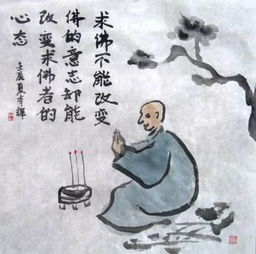 求佛不能改变
佛的意志却能
改变求佛者的
心态
壬辰夏李辉